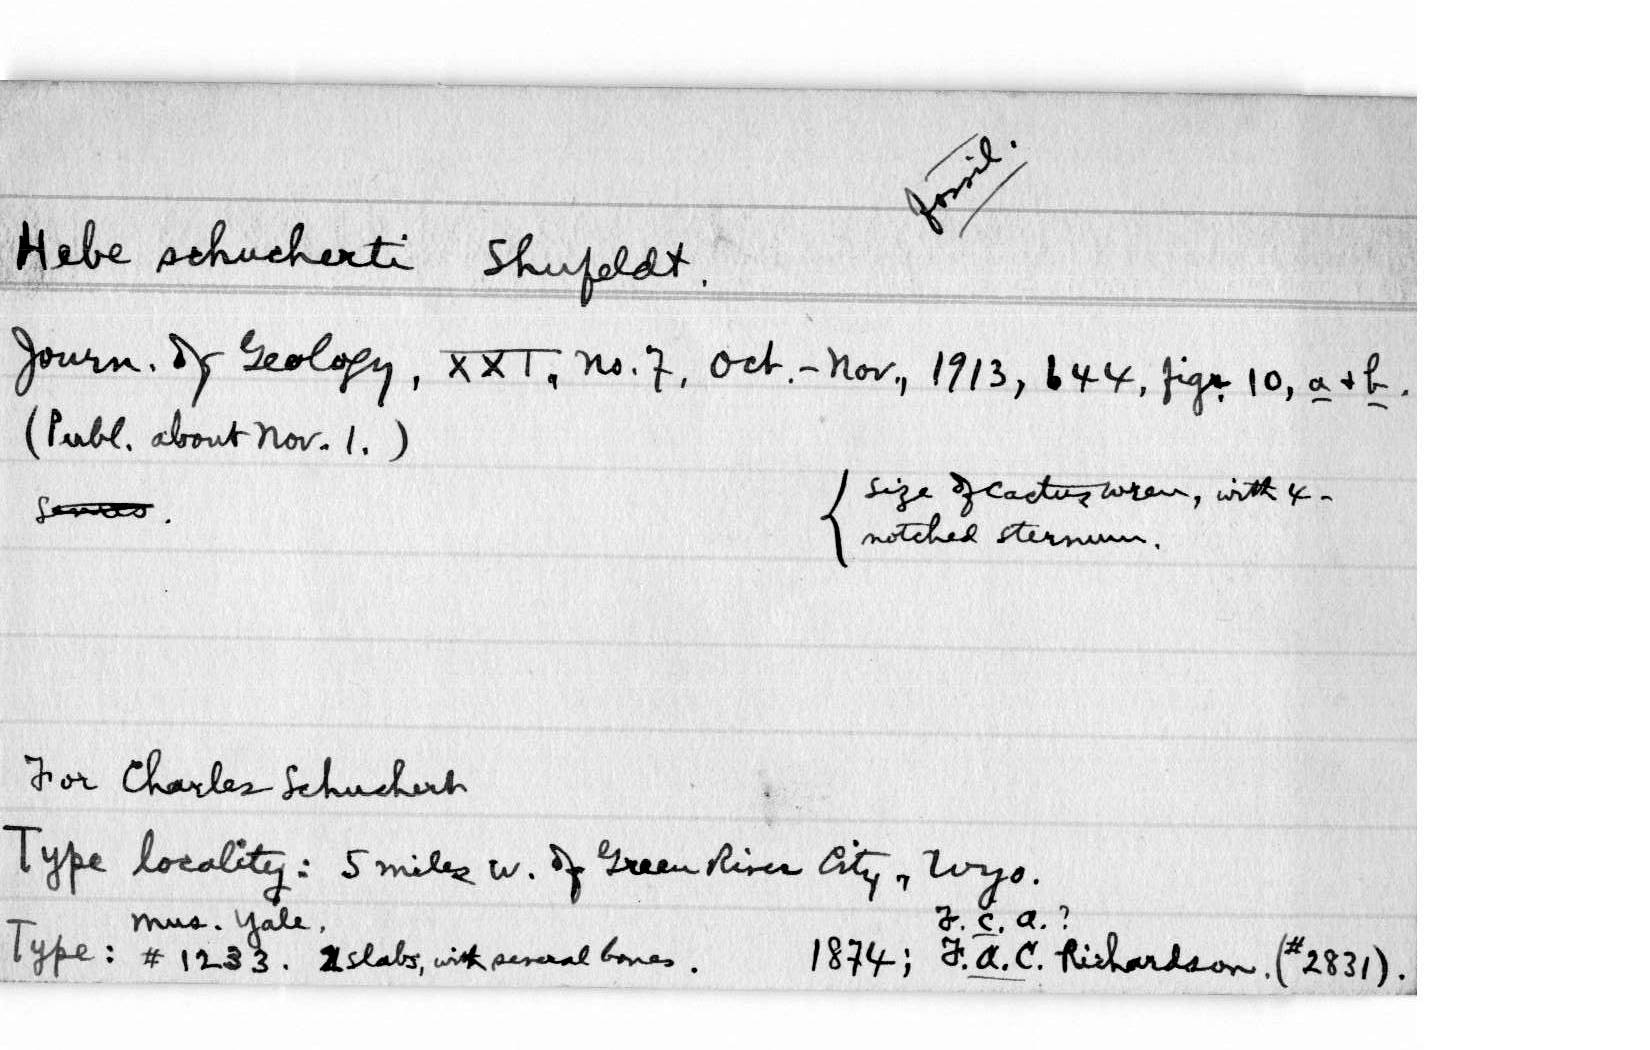 fossil.
Hebe schucherti Shufeldt.
Journ. of Geology, XXI, no. 7, Oct.-Nov., 1913, 644, figs. 10, a + b.
(Publ. about Nov. 1.)
Size of Cactus wren, with 4-
notched sternum.
For Charles Schuchert
Type locality: 5 miles w. of Green River City, Wyo.
Mus. Yale. F. C. A.?
Type: # 1233. 2 slabs, with several bones. 1874; F. A. C. Richardson. (#2831).